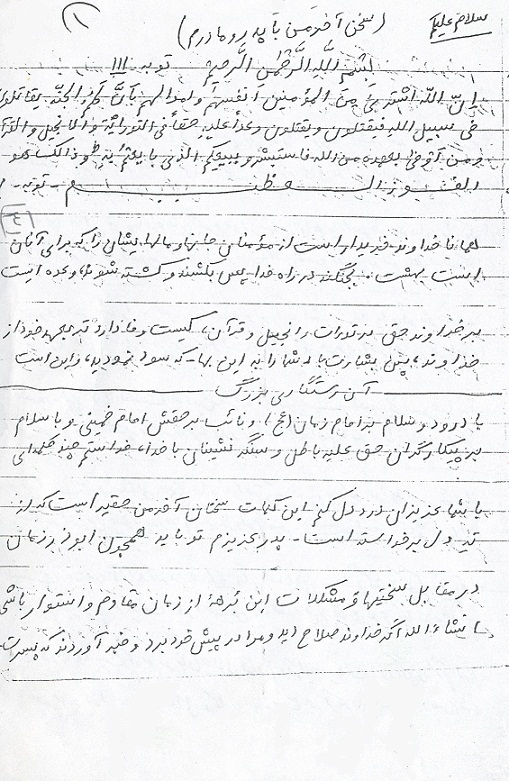 ۱
سلام علیکم
(سخن آخر من با پدر و مادرم)
بسم الله الرحمن الرحیم توبه - ۱۱۱
ان الله اشتری من المؤمنین انفسهم و اموالهم بأن لهم الجنة یقاتلون
فی سبیل الله فیقتلون و یقتلون وعدا علیه حقا فی التوراتة و الانجیل و القرآ
و من أوفی بعهده من الله فاستبشرو ببیعکم الذی بایعتم به و ذالک هو
الفوز العظیم - توبه -
(۴)
همانا خداوند خریدار است از مؤمنان جانها و مالهایشان را که برای آنان
است بهشت. بجنگند در راه خدا پس بکشند و کشته شوند، وعده است
بر خداوند حق در تورات و انجیل و قرآن، کیست وفادارتر بعهد خود از
خداوند، پس بشارت باد شما را به این بها که سود نمودید، و این است
آن رستگاری بزرگ
با درود و سلام بر امام زمان (عج) و نائب بر حقش امام خمینی و با سلام
بر پیکارگران حق علیه باطل و سنگر نشینان با خدا، خواستم چند کلمه‌ای
با شما عزیزان درد دل کنم این کلمات سخنان آخر من حقیر است که از
ته دل برخواسته است. پدر عزیزم تو باید همچون ابوذر زمان
در مقابل سختیها و مشکلات این برههٔ از زمان مقاوم و استوار باشی
انشاءالله اگه خداوند صلاح دید و مرا در پیش خود برد و خبر آوردند که پسرت